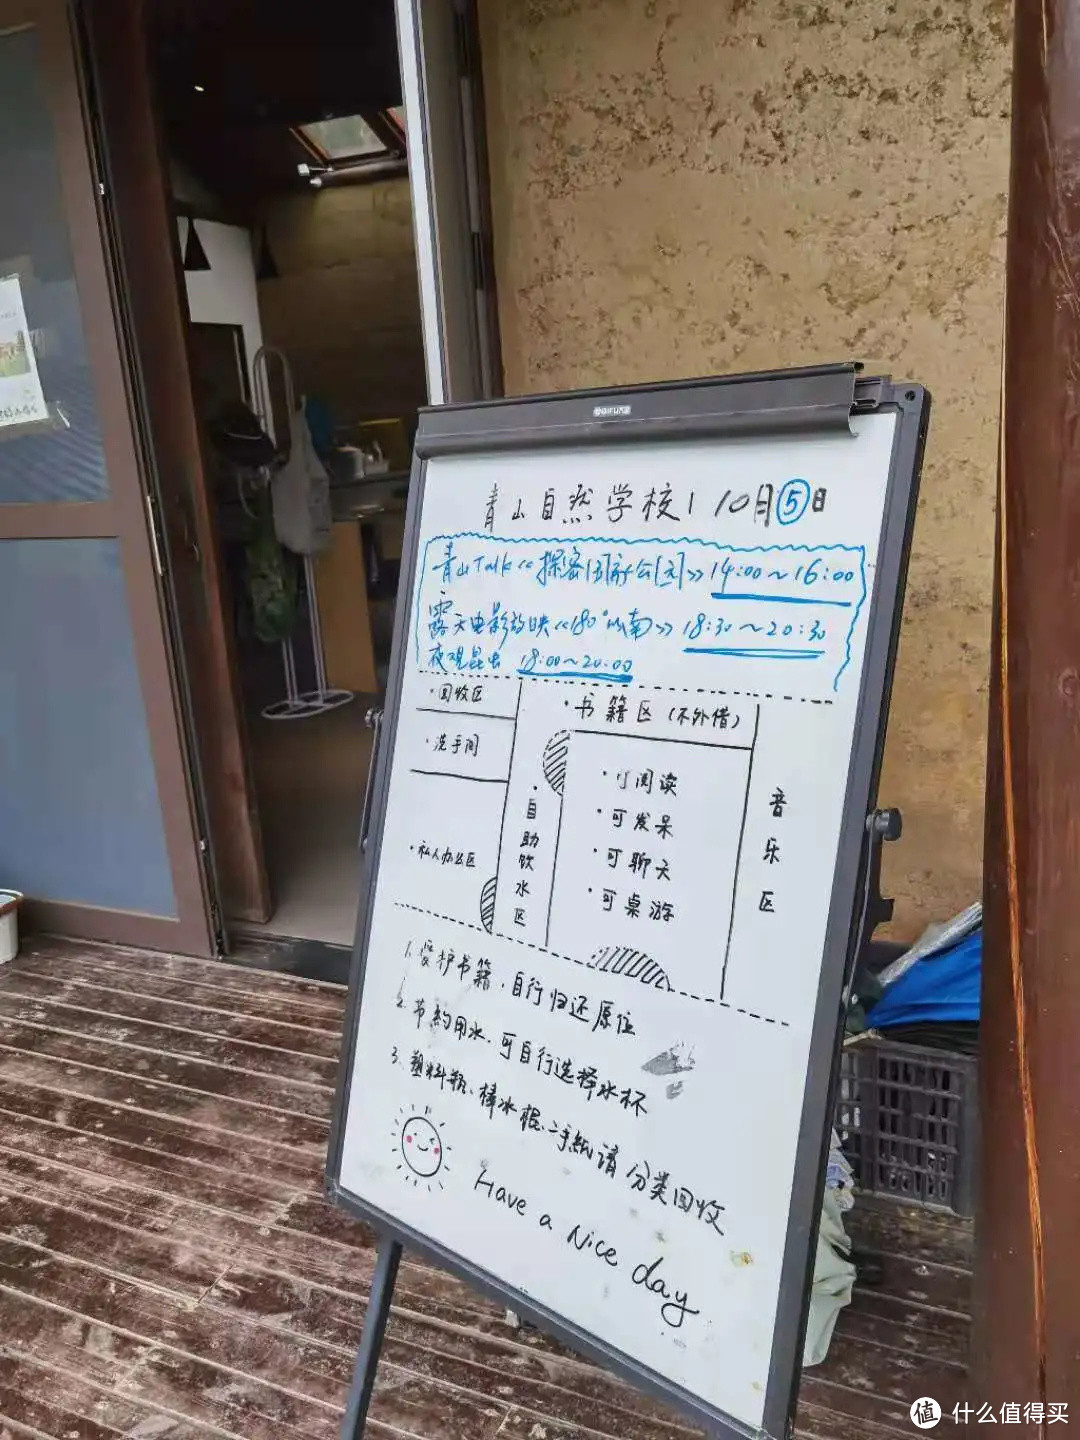 青山自然学校 | 10月⑤日
青山Talk《探密国家公园》14:00~16:00
露天电影放映《180°以南》18:30~20:30
夜观昆虫 18:00~20:00
·回收区
·洗手间
·私人办公区
·自助饮水区
·书籍区(不外借)
·可阅读
·可发呆
·可聊天
·可桌游
音乐区
1.爱护书籍,自行归还原位
2.节约用水,可自行选择水杯
3.塑料瓶、棒冰棍、手纸请分类回收
Have a Nice day
值 什么值得买